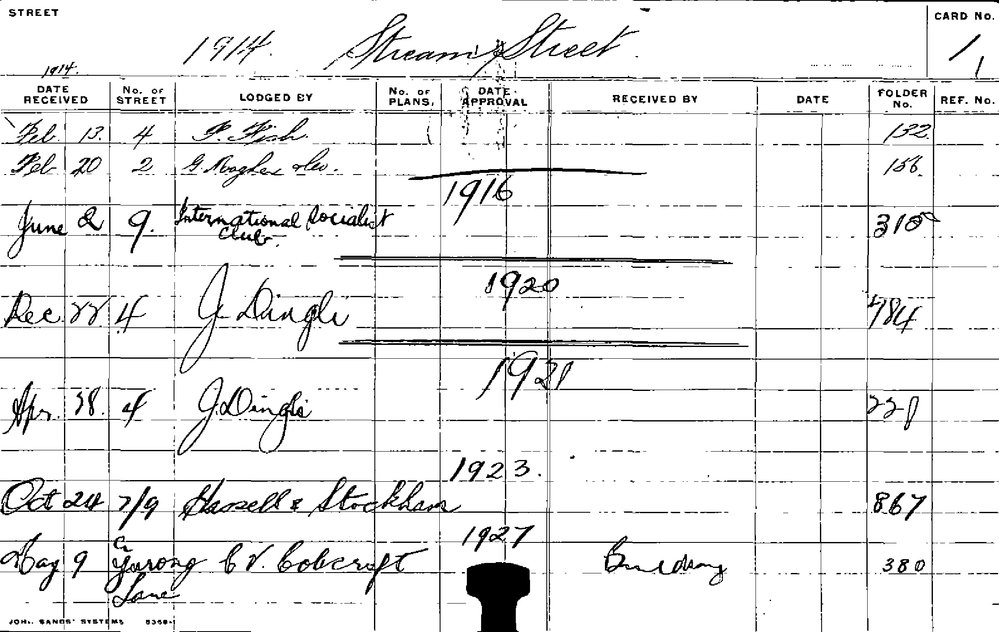 STREET
CARD No.
1914. Stream Street
1/1
1914.
DATE RECEIVED No. OF STREET LODGED BY No. OF PLANS. DATE APPROVAL RECEIVED BY DATE FOLDER No. REF. No.
Feb 13. 4 P. Fish 132
Feb 20 2 G. 156
1916
June 2 9. International Socialist 310
Club.
1920
Dec 22 4 J. Dingli 784
1921
Apr. 28. 4 J. Dingli 221
1923.
Oct 24 7/9 Hassell & Stockham 867
1927
May 9 Cr Yurong Lane C V. Cobcroft Building 380
JOHN SANDS' SYSTEMS